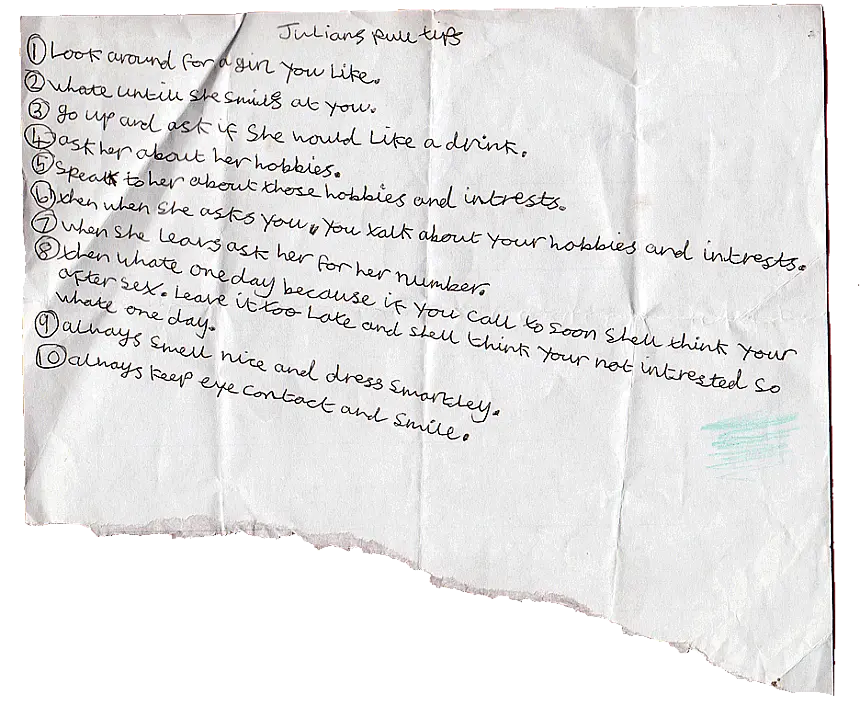 Julians pull tips
① Look around for a girl you like.
② whate untill she smils at you.
③ go up and ask if she would like a drink.
④ ask her about her hobbies.
⑤ speak to her about those hobbies and intrests.
⑥ then when she asks you, you talk about your hobbies and intrests.
⑦ when she leavs ask her for her number.
⑧ then whate one day because if you call to soon shell think your
after sex. Leave it too late and shell think your not intrested so
whate one day.
⑨ always smell nice and dress smartley.
⑩ always keep eye contact and smile.